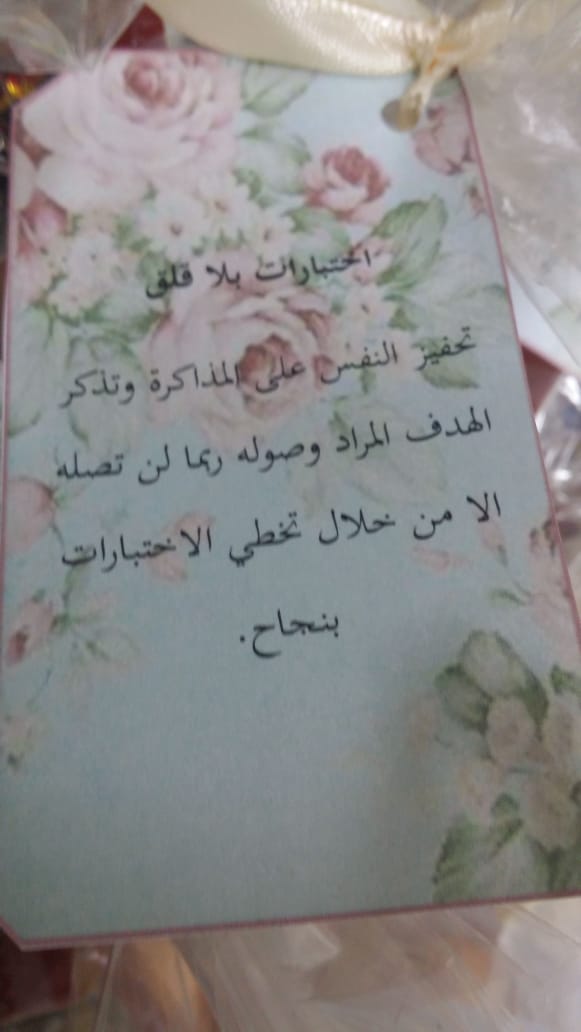 اختبارات بلا قلق
تحفيز النفس على المذاكرة وتذكر
الهدف المراد وصوله ربما لن تصله
الا من خلال تخطي الاختبارات
بنجاح.